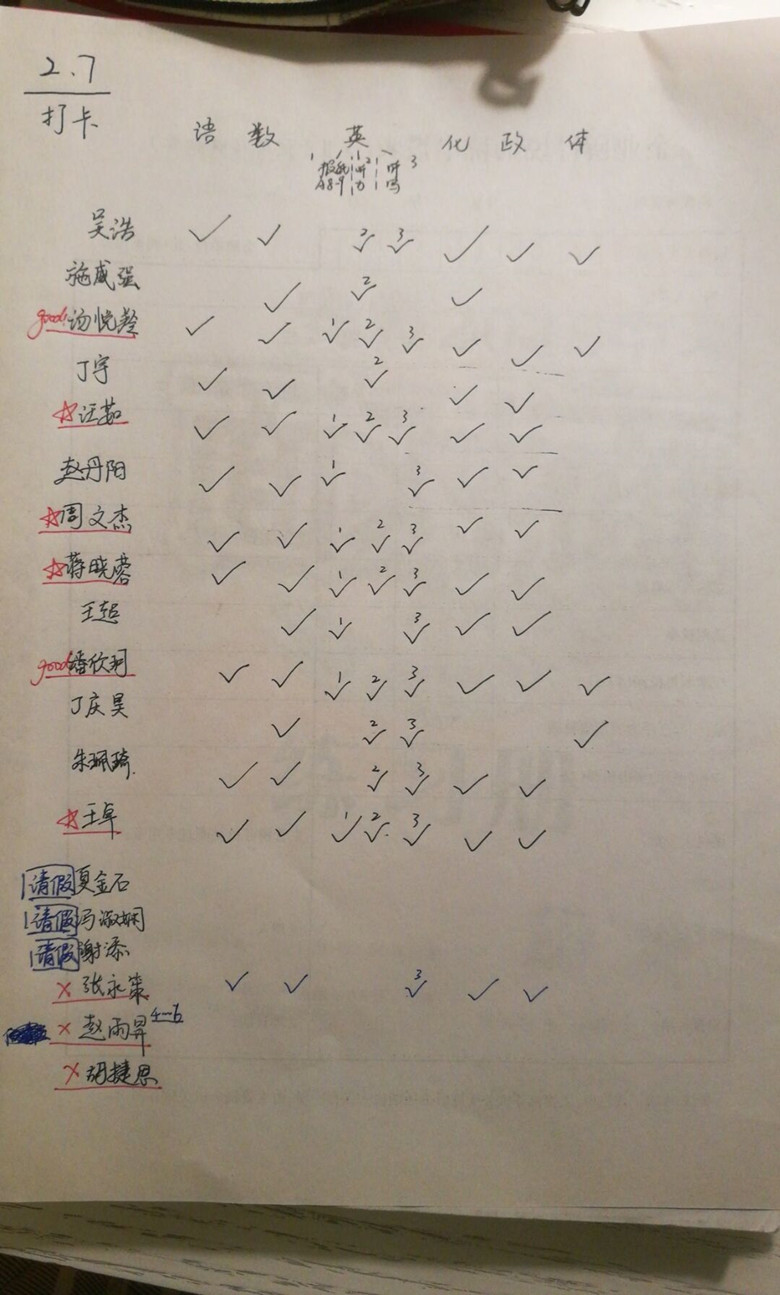 2.7
打卡
语 数 英 化 政 体
1 报纸 2 听 3 听
A8-9 力 写
吴浩 ✓ ✓ 2✓ 3✓ ✓ ✓ ✓
施威强 ✓ 2✓ ✓
good! 汤悦 ✓ ✓ 1✓ 2✓ 3✓ ✓ ✓ ✓
丁宇 ✓ ✓ 2✓ ✓ ✓
☆汪茹 ✓ ✓ 1✓ 2✓ 3✓ ✓ ✓
赵丹阳 ✓ ✓ 1✓ 3✓ ✓ ✓
☆周文杰 ✓ ✓ 1✓ 2✓ 3✓ ✓ ✓
☆蒋晓蓉 ✓ ✓ 1✓ 2✓ 3✓ ✓ ✓
王超 ✓ 1✓ 3✓ ✓ ✓
good 潘欣羽 ✓ ✓ 1✓ 2✓ 3✓ ✓ ✓ ✓
丁庆昊 ✓ 2✓ 3✓ ✓
朱珮琦 ✓ ✓ 2✓ 3✓ ✓ ✓
☆王卓 ✓ ✓ 1✓ 2✓ 3✓ ✓ ✓
请假 夏金石
请假 冯淑娴
请假 谢添
× 张永策 ✓ ✓ 3✓ ✓ ✓
× 赵雨昇 4-6
× 胡捷恩